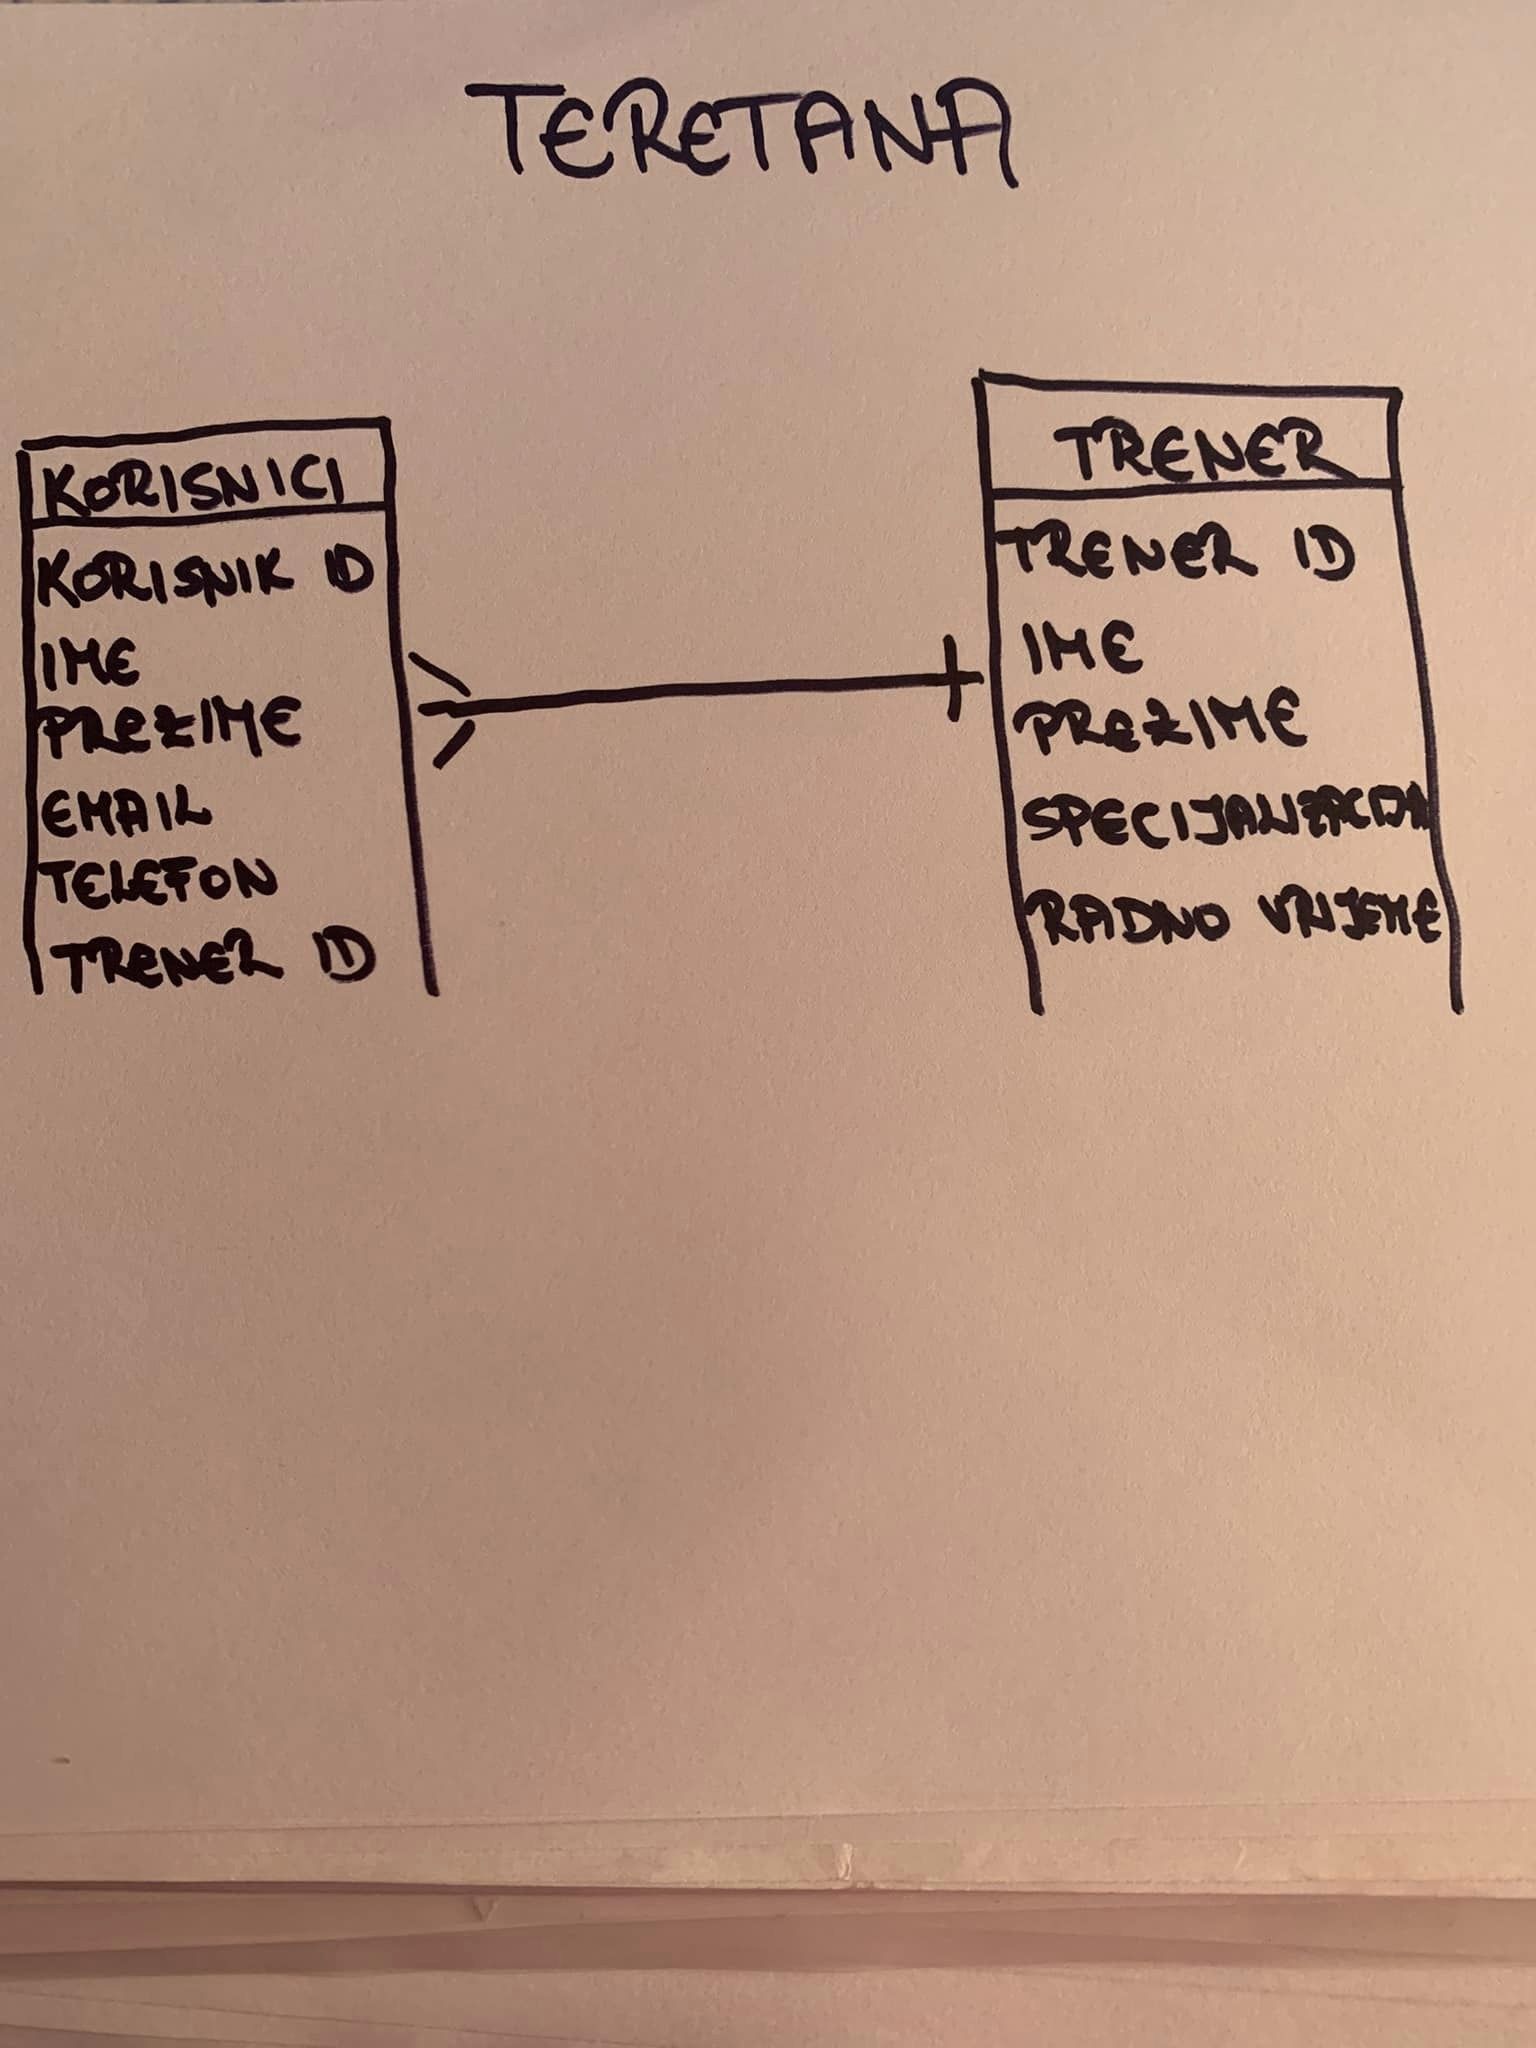 TERETANA
KORISNICI
KORISNIK ID
IME
PREZIME
EMAIL
TELEFON
TRENER ID
TRENER
TRENER ID
IME
PREZIME
SPECIJALIZACIJA
RADNO VRIJEME